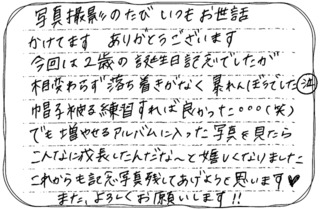 写真撮影のたび いつもお世話
かけてます ありがとうございます
今回は2歳の誕生日記念でしたが
相変わらず落ち着きがなく 暴れんぼうでした泣
帽子被る練習すれば良かった。。。(笑)
でも増やせるアルバムに入った写真を見たら
こんなに成長したんだな〜と嬉しくなりました
これからも記念写真残してあげようと思います♥
また、よろしくお願いします!!